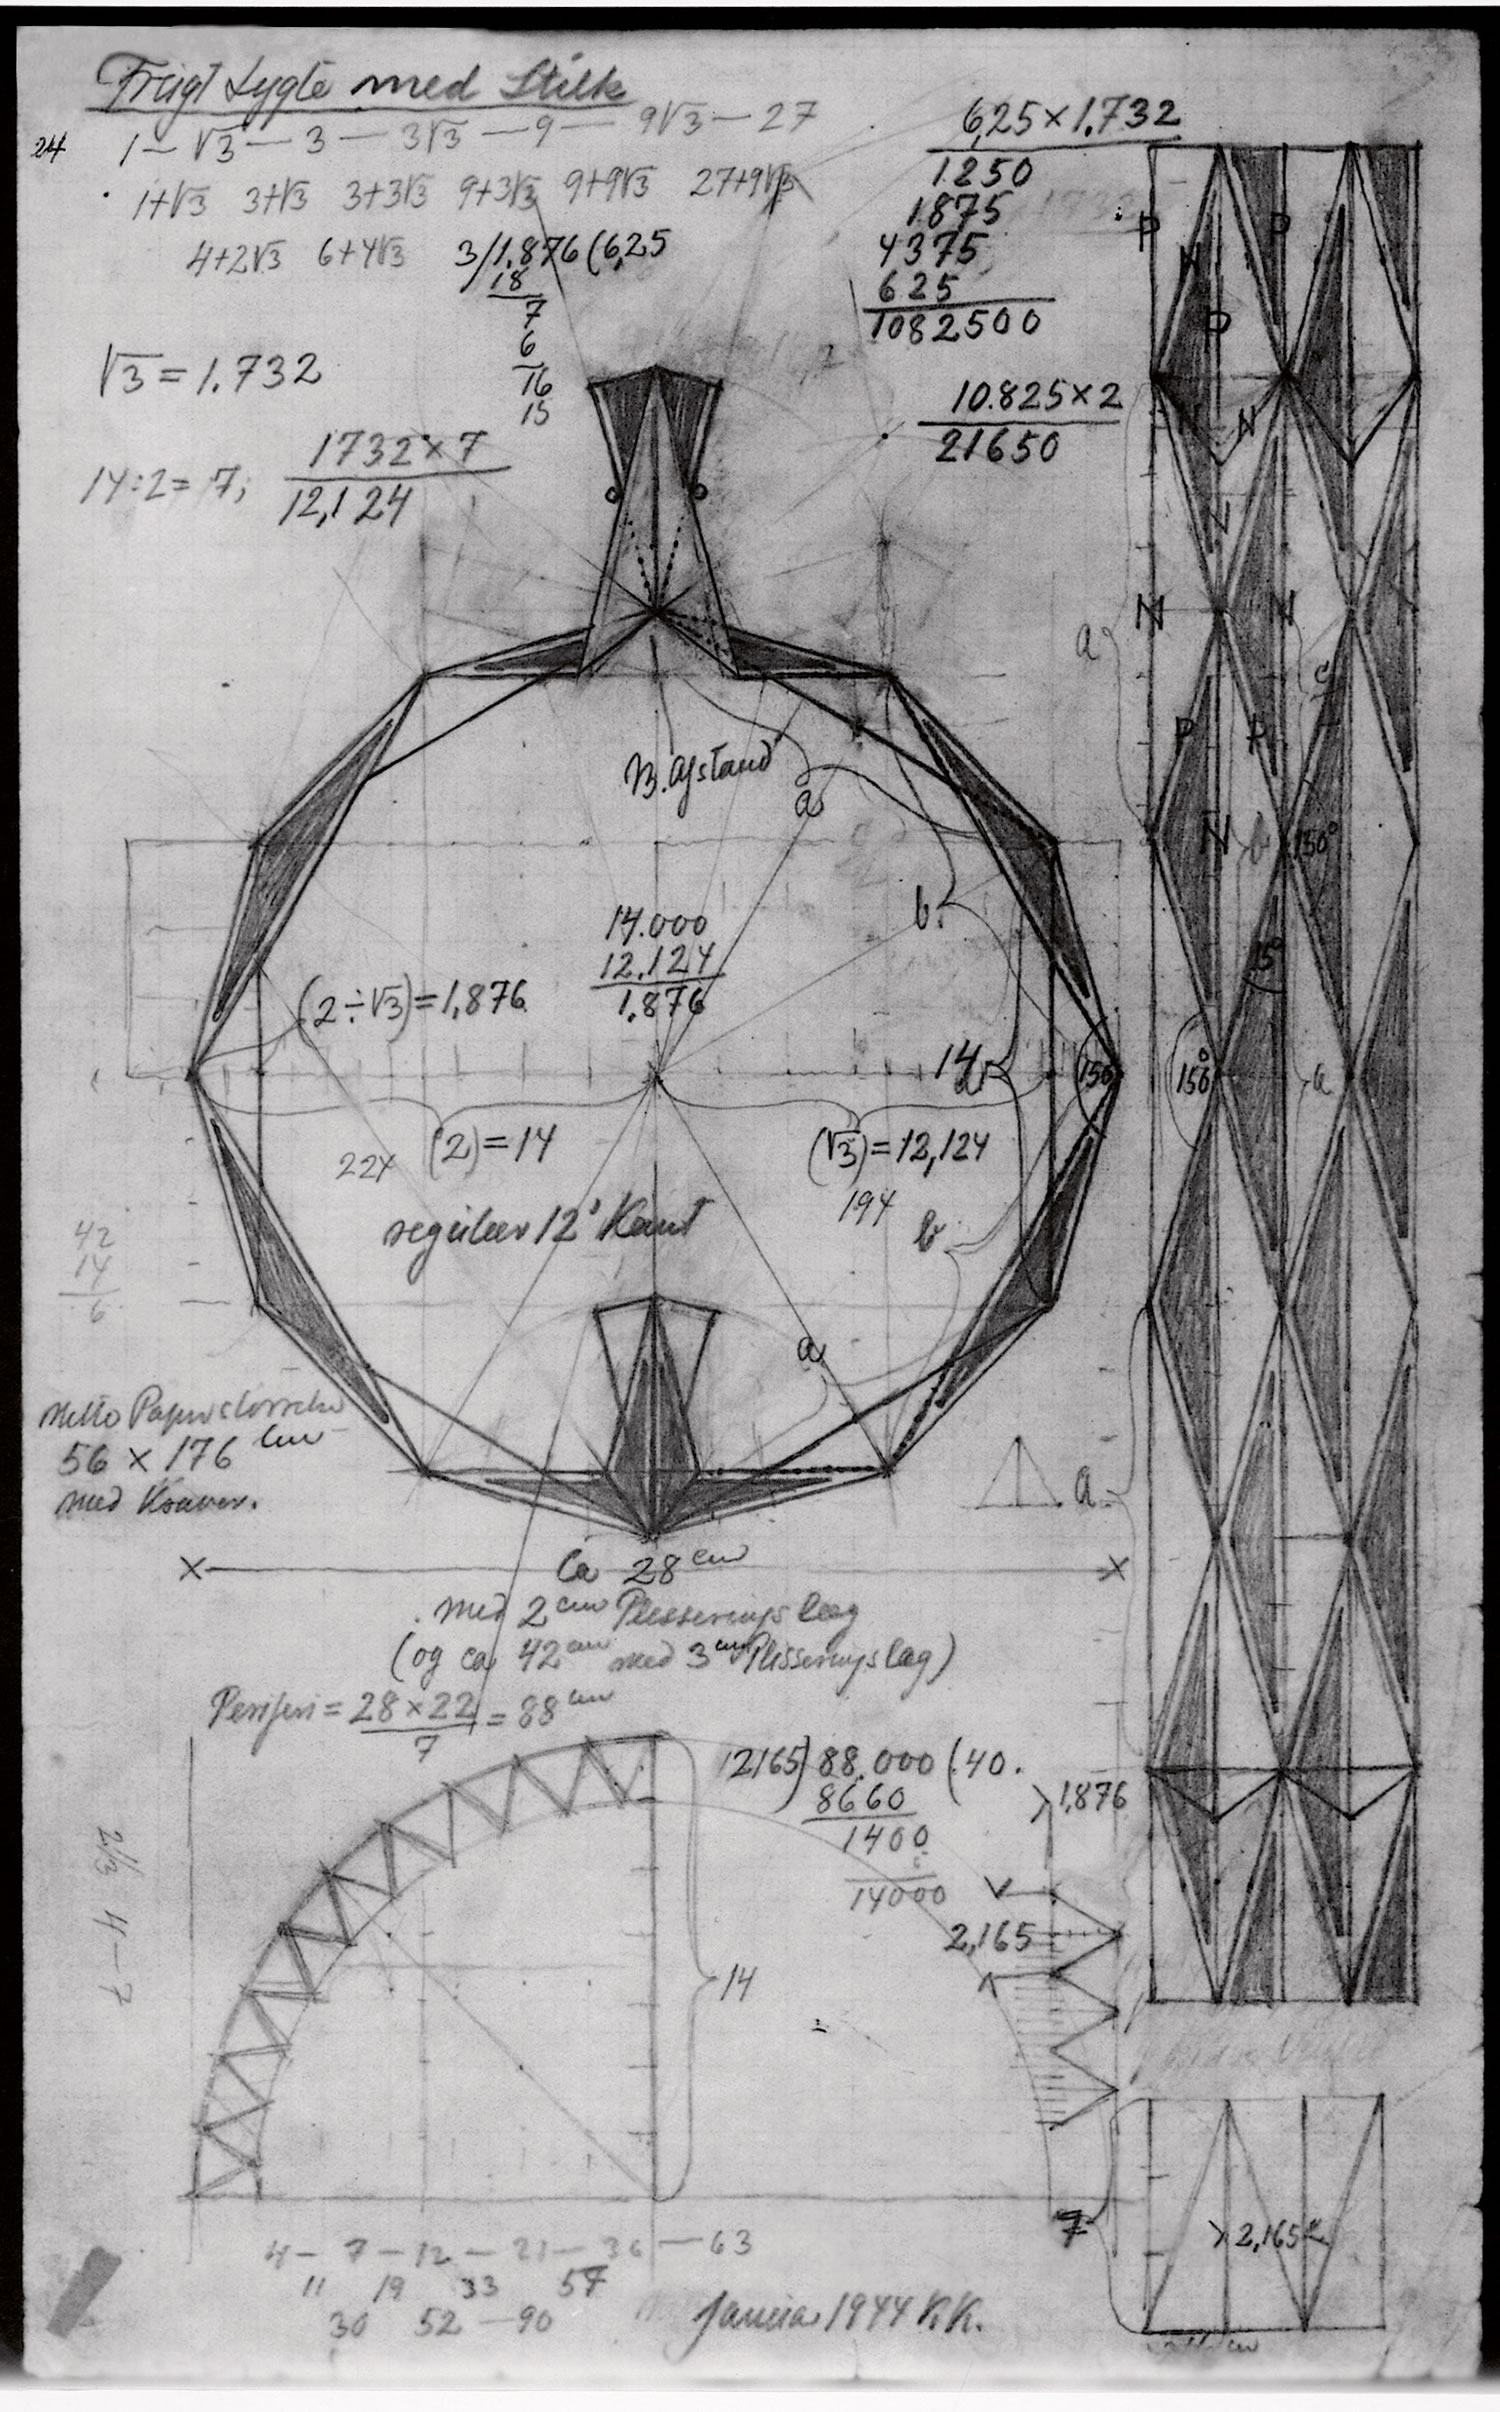 Frugt Lygte med Stilk
24
1 — √3 — 3 — 3√3 — 9 — 9√3 — 27
1+√3 3+√3 3+3√3 9+3√3 9+9√3 27+9√3
4+2√3 6+4√3
3/1.876(6,25
18
7
6
16
15
6,25×1.732
1250
1875
4375
625
1082500
√3 = 1.732
10.825×2
21650
14:2=7;
1732×7
12,124
P
N
P
P
N
N
N
N
N
P
P
N
a
c
b
150°
15°
150°
a
a
B. Afstand
a
b.
14.000
12.124
1.876
(2÷√3)=1,876
14
150
(2)=14
224
(√3)=12,124
194
regulær 12' Kant
b
a
42
14
6
Netto Papirstørrelse
56 × 176 cm
med Kraver.
Ca 28 cm
med 2 cm Plisseringslæg
(og ca 42 cm med 3 cm Plisseringslæg)
Periferi = 28×22 = 88 cm
7
2165)88.000(40.
8660
1400
14000
1,876
2,165
14
4 — 7
7
2,165
4 — 7 — 12 — 21 — 36 — 63
11 19 33 57
30 52 — 90
Januar 1944 K.K.